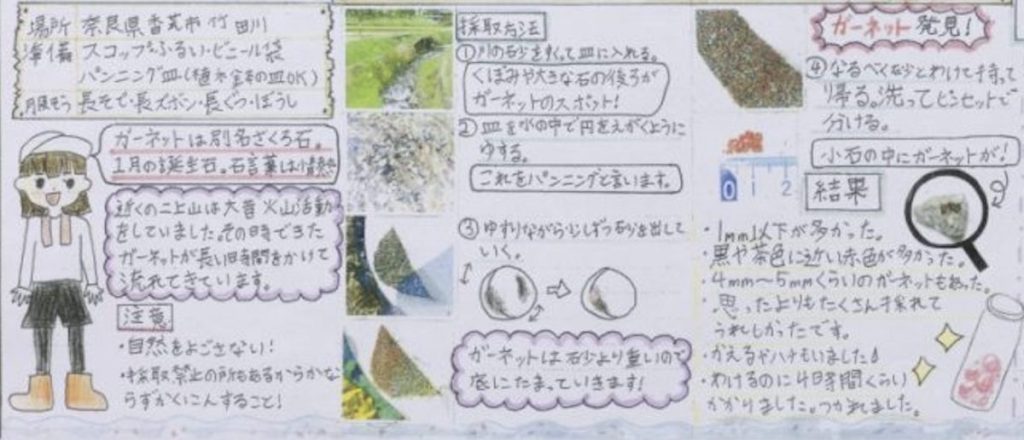 場所 奈良県香芝市竹田川
準備 スコップ・ふるい・ビニール袋
パンニング皿(植木金本の皿OK)
服そう 長そで・長ズボン・長ぐつ・ぼうし
ガーネットは別名ざくろ石。
1月の誕生石。石言葉は
近くの二上山は大昔火山活動
をしていました。その時できた
ガーネットが長い時間をかけて
流れてきています。
注意
・自然をよごさない!
・採取禁止の所もあるからかな
らずかくにんすること!
採取方法
①川の砂をすくって皿に入れる。
くぼみや大きな石の後ろが
ガーネットのスポット!
②皿を水の中で円をえがくように
ゆする。
これをパンニングと言います。
③ゆすりながら少しずつ石砂を出して
いく。
ガーネットは石砂より重いので
底にたまっていきます!
ガーネット発見!
④なるべく砂とわけて持って
帰る。洗ってピンセットで
分ける。
0 1 2
小石の中にガーネットが!
結果
・1mm以下が多かった。
・黒や茶色に近い赤色が多かった。
・4mm〜5mmくらいのガーネットもあった。
・思ったよりもたくさん採れて
うれしかったです。
・かえるやハチもいました
・わけるのに4日時間くらい
かかりました。つかれました。